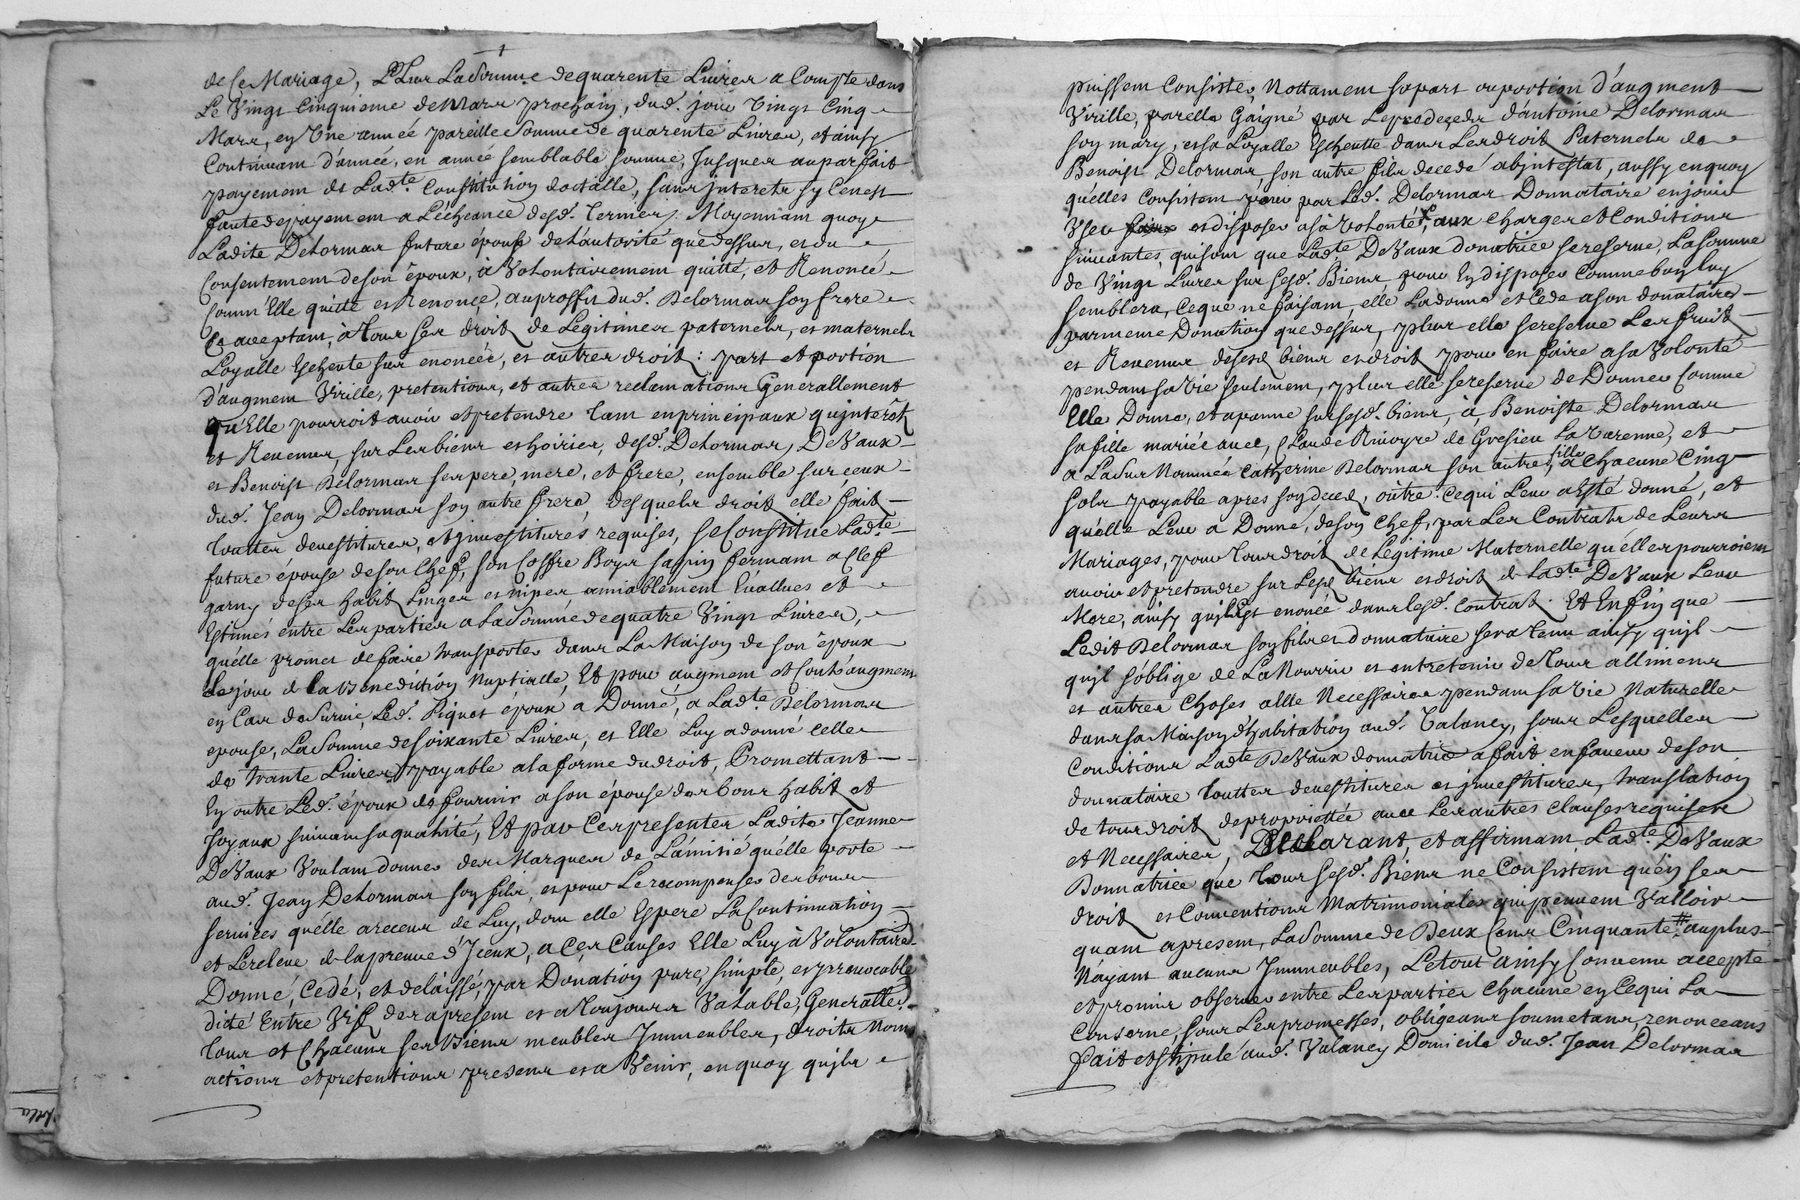 de Ce Mariage, Plus La Somme de quarente Livres a Compte dans
Le Vingt Cinquieme de Mars prochain, dud. jour Vingt Cinq
Mars, en Une année pareille Somme de quarente Livres, et ainsy
Continuant d'année, en année semblable somme, Jusques au parfait
payement de Ladte Constitution dotalle, sans jnterets sy Cenest
faute de payement a L'écheance desd. termes. Moyennant quoy
Ladite Delormas future épouse de L'autorité que dessus, et du
Consentement de son époux, à Volontairement quitté, et Renoncé
Comm'Elle quitte et Renonce, au proffit dud. Delormas son frere
Ce acceptant, à Tous ses droit de Legitimes paternels, et maternels
Loyalle Escheute sus enoncée, et autres droit : part et portion
d'augment Virille, pretentions, et autres reclamations Generallement
qu'Elle pourroit avoir et pretendre tant en principaux qu'interêt
et Revenus, sur Les biens et hoiries, desd. Delormas, DeVaux
et Benoist Delormas ses pere, mere, et frere, ensemble sur ceux
dud. Jean Delormas son autre frere, desquels droit elle fait
touttes devestitures, et jnvestitures requises, se Constitue Ladte
future épouse de son Chef, son Coffre Boys sappin fermant a Clef
garny de ses habit Linges et nipes amiablement Evallues et
Estimés entre Les parties a La Somme de quatre Vingt Livres,
qu'elle promet de faire transporter dans La Maison de son époux
Le jour de la Benediction Nuptialle, Et pour augment et Contr'augment
en Cas de Survie, Led. Piquet époux a Donné, a Ladte Delormas
epouse, La Somme de soixante Livres, et Elle Luy a donné celle
de trante Livres, payable a la forme du droit, Promettant
En outre Led. époux de fournir a son épouse des bons habit et
Joyaux suivant sa qualité, Et par Ces presentes Ladite Jeanne
DeVaux Voulant donner des Marques de L'amitié qu'elle porte
aud. Jean Delormas son fils, et pour Le recompenser des bons
services qu'elle a receus de Luy, dont elle Espere La Continuation
et Le releve de la preuve d'Jceux, a Ces Causes Elle Luy à Volontaire
Donné, Cedé, et delaissé, par Donation pure, simple, et jrrevocable
dite Entre Vifs des apresent et a Toujours Valable, Generalle
tous et Chacuns ses Biens meubles Jmmeubles, droits Noms
actions et pretentions presens et a Venir, en quoy qu'ils
puissent Consister, Nottament sa part ou portion d'augment
Virille, par elle Gaigné par Le predeceds d'antoine Delormas
son mary, et sa Loyalle Escheutte dans Les droit Paternels de
Benoist Delormas son autre fils decedé abjntestat, aussy en quoy
qu'elles Consistent pour par Led. Delormas Donnataire en jouir
User et disposer a sa volonté, aux charges et Conditions
suivantes, qui sont que Ladte DeVaux donatrice se reserve, La somme
de Vingt Livres sur sesd. Biens pour En disposer Comme bon luy
semblera, Ce que ne faisant, elle La donne et Cede a son donataire
par meme Donation que dessus, plus elle se reserve Les fruit
et Revenus desesd biens et droit pour en faire a sa Volonté
pendant sa vie seulement, plus elle se reserve de Donner Comme
Elle Donne, et apanne sur sesd. biens, à Benoiste Delormas
sa fille mariée avec, Claude Rivoyre de Gresieu La Varenne, et
a La Sus Nommée Catherine Delormas son autre fille, a Chacune Cinq
sols payable apres son deced, oûtre Ce qui Leur a Esté donné, et
qu'elle Leur a Donné, de son Chef, par Les Contrats de Leurs
Mariages, pour Tous droit de Legitime Maternelle qu'elles pourroient
avoir et pretendre sur Lesd biens et droit de Ladte DeVaux Leur
Mere, ainsy qu'il Est enoncé dans lesd. Contrat. Et Enfin que
Ledit Delormas son fils et donnataire sera tenu ainsy qu'jl
qu'jl s'oblige de La Nourrir et entretenir de Tous allimens
et autres Choses alle Necessaires pendant sa vie Naturelle
dans sa Maison d'habitation aud. Valancy, sous Lesquelles
Conditions Ladte DeVaux donnatrice a fait en faveur de son
donnataire touttes devestitures et jnvestitures, translation
de tous droit de proprietée avec Les autres clauses requises
et Necessaires, Declarant, et affirmant Ladte DeVaux
Donnatrice que Tous sesd. Biens ne Consistent qu'en ses
droit et Conventions Matrimoniales qui peuvent Valloir
quant apresent, La Somme de Deux Cens Cinquante # au plus
Nayant aucuns Jmmeubles, Le tout ainsy Convenu accepte
et promis observer entre Les parties Chacune en Ce qui La
Conserne, sous Les promesses, obligeans soumetans, renonceans
fait et stipulé aud. Valancy Domicile dud. Jean Delormas